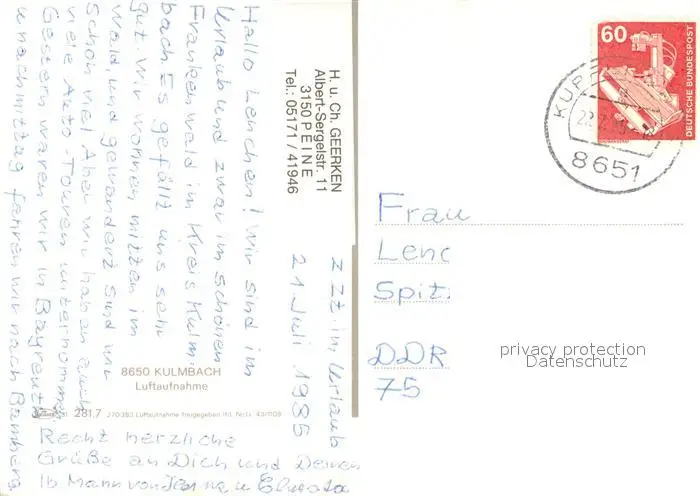 H. u. Ch. GEERKEN
Albert-Sergelstr. 11
3150 PEINE
Tel.: 05171 / 41946
z Zt im Urlaub
21 Juli 1985
Hallo Lenchen! Wir sind im
Urlaub und zwar im schönen
Frankenwald im Kreis Kulm-
bach. Es gefällt uns sehr
gut. Wir wohnen mitten im
Wald, und gewandert sind wir
schon viel. Aber wir haben auch
viele Auto-Touren unternommen.
Gestern waren wir in Bayreuth
u nachmittag fahren wir nach Bamberg
Recht herzliche
Grüße an Dich und Deinen
lb Mann von
8650 KULMBACH
Luftaufnahme
281.7 270/283 Luftaufnahme freigegeben
60
DEUTSCHE BUNDESPOST
8651
Frau
Lenc
Spitz
DDR
75
privacy protection
Datenschutz